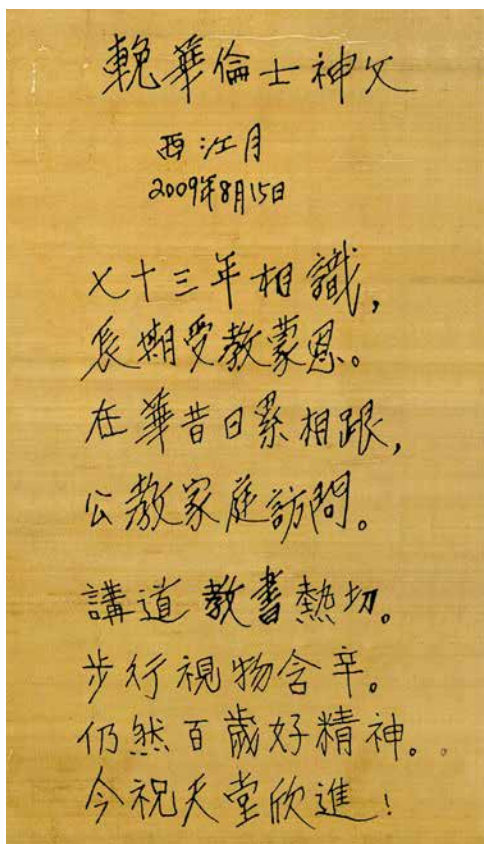 輓華倫士神父
西江月
2009年8月15日
七十三年相識,
長期受教蒙恩。
在華昔日累相跟,
公教家庭訪問。
講道教書熱切。
步行視物含辛。
仍然百歲好精神。.
今祝天堂欣進!